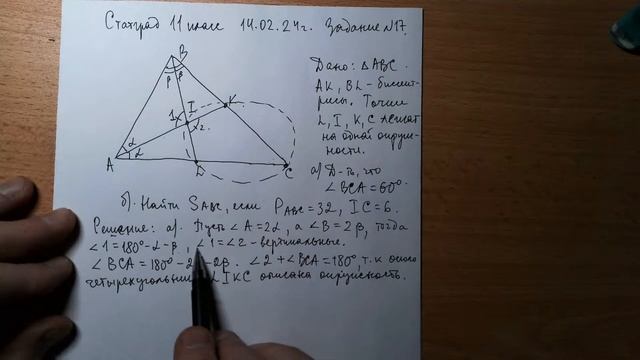 Статград 11 класс 14.02.24г. Задание №17.
B
β β
I K
1 2
α
α
A L C
Дано: △ABC.
AK, BL - биссек-
трисы. Точки
L, I, K, C лежат
на одной окруж-
ности.
а) Д-ть, что
∠BCA=60°.
б). Найти S_ABC, если P_ABC=32, IC=6.
Решение: а). Пусть ∠A=2α, а ∠B=2β, тогда
∠1=180°-α-β, ∠1=∠2 - вертикальные.
∠BCA=180°-2 -2β. ∠2+∠BCA=180°, т.к около
четырёхугольни IKC описана окружность.